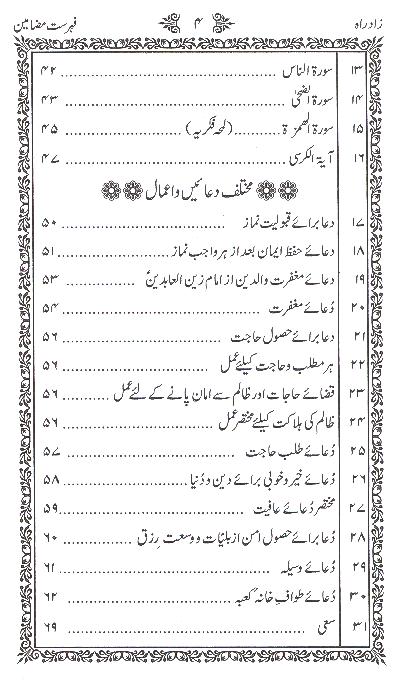 زادِ راہ ۴ فہرست مضامین
۱۳ سورۃ الناس ۴۲
۱۴ سورۃ الضحیٰ ۴۳
۱۵ سورۃ الھمزۃ (لمحہ فکریہ) ۴۵
۱۶ آیۃ الکرسی ۴۷
مختلف دعائیں و اعمال
۱۷ دعا برائے قبولیت نماز ۵۰
۱۸ دعائے حفظ ایمان بعد از ہر واجب نماز ۵۱
۱۹ دعائے مغفرت والدین از امام زین العابدینؑ ۵۳
۲۰ دُعائے مغفرت ۵۴
۲۱ دعا برائے حصول حاجت ۵۶
۲۲ ہر مطلب و حاجت کیلئے عمل ۵۶
۲۳ قضائے حاجات اور ظالم سے امان پانے کے لئے عمل ۵۶
۲۴ ظالم کی ہلاکت کیلئے مختصر عمل ۵۶
۲۵ دُعائے طلب حاجت ۵۷
۲۶ دُعائے خیر و خوبی برائے دین و دُنیا ۵۸
۲۷ مختصر دُعائے عافیت ۵۹
۲۸ دُعا برائے حصول امن از بلیّات و وسعت رِزق ۶۰
۲۹ دُعائے وسیلہ ۶۱
۳۰ دُعائے طواف خانہ کعبہ ۶۲
۳۱ سعی ۶۹